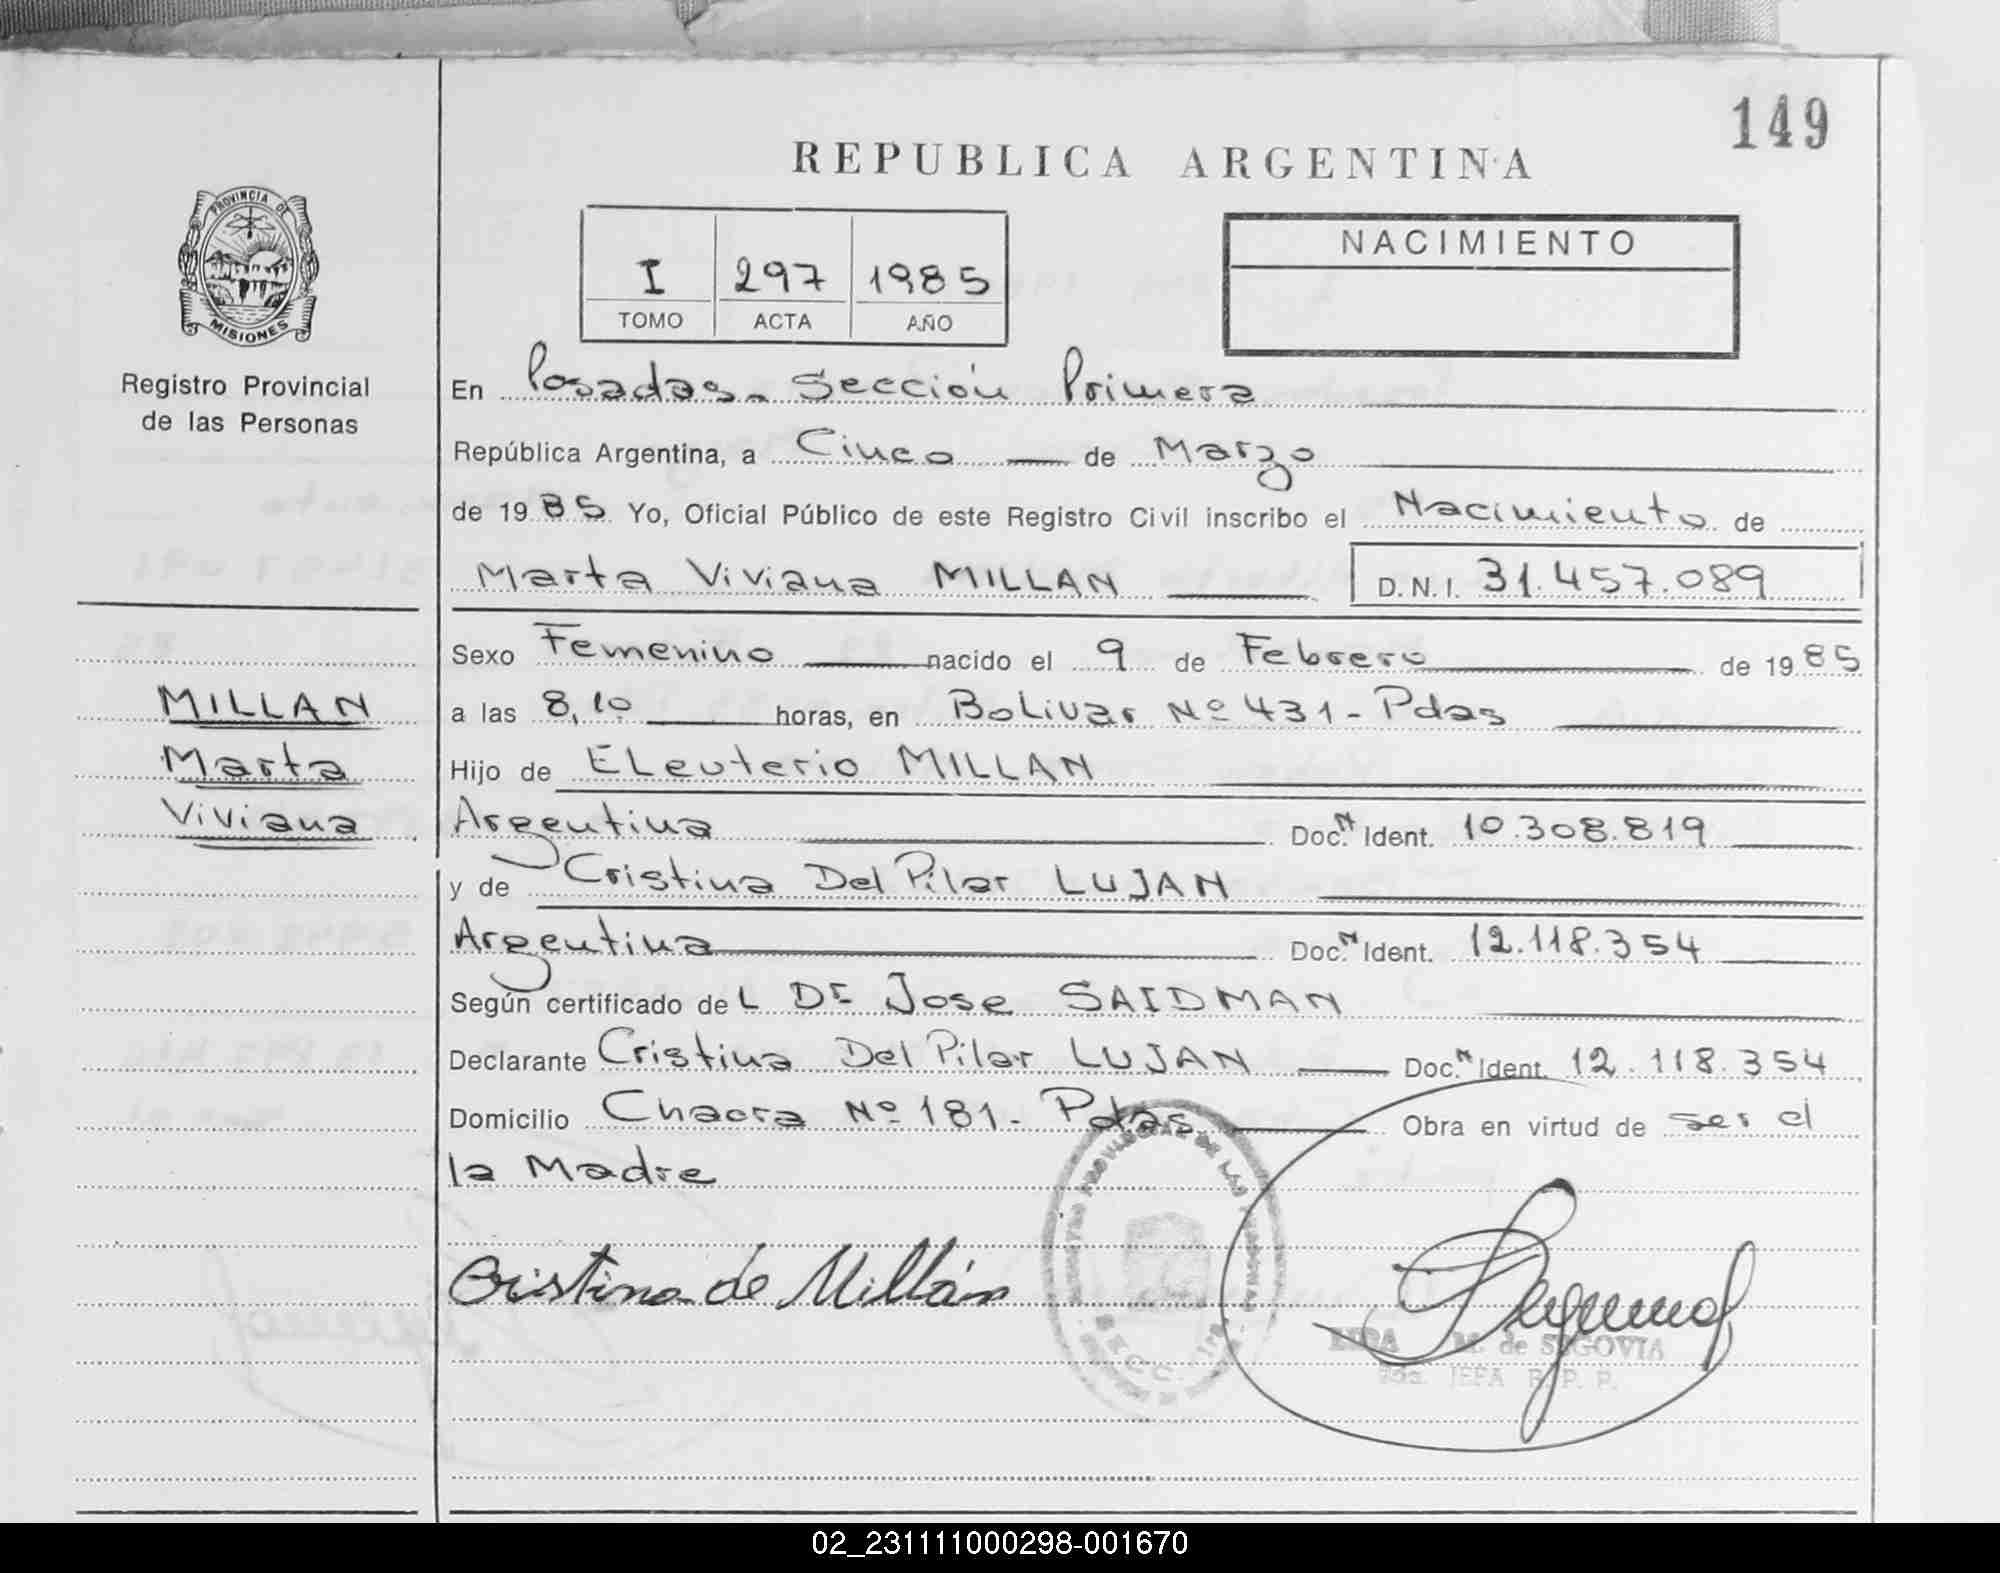 149
REPUBLICA ARGENTINA
PROVINCIA DE
MISIONES
Registro Provincial
de las Personas
I 297 1985
TOMO ACTA AÑO
NACIMIENTO
En Posadas. Sección Primera
República Argentina, a Cinco de Marzo
de 1985 Yo, Oficial Público de este Registro Civil inscribo el Nacimiento de
Marta Viviana MILLAN D.N.I. 31.457.089
Sexo Femenino nacido el 9 de Febrero de 1985
MILLAN
Marta
Viviana
a las 8,10 horas, en Bolivar Nº 431 - Pdas
Hijo de ELeuterio MILLAN
Argentina Doc. N Ident. 10.308.819
y de Cristina Del Pilar LUJAN
Argentina Doc. N Ident. 12.118.354
Según certificado de L Dr Jose SAIDMAN
Declarante Cristina Del Pilar LUJAN Doc. N Ident. 12.118.354
Domicilio Chacra Nº 181 - Pdas Obra en virtud de ser el
la Madre
Cristina de Millán
M. de SEGOVIA
JEFA R. P. P.
02_231111000298-001670